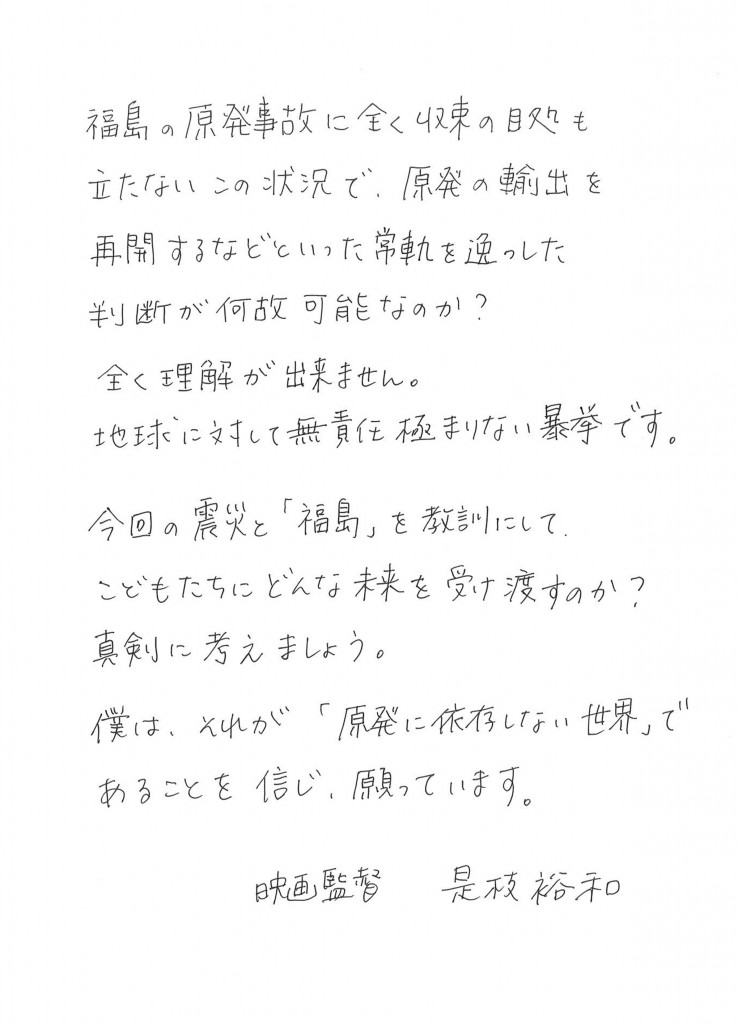 福島の原発事故に全く収束の目処も
立たないこの状況で、原発の輸出を
再開するなどといった常軌を逸っした
判断が何故可能なのか？
全く理解が出来ません。
地球に対して無責任極まりない暴挙です。
今回の震災と「福島」を教訓にして、
こどもたちにどんな未来を受け渡すのか？
真剣に考えましょう。
僕は、それが「原発に依存しない世界」で
あることを信じ、願っています。
映画監督　是枝裕和